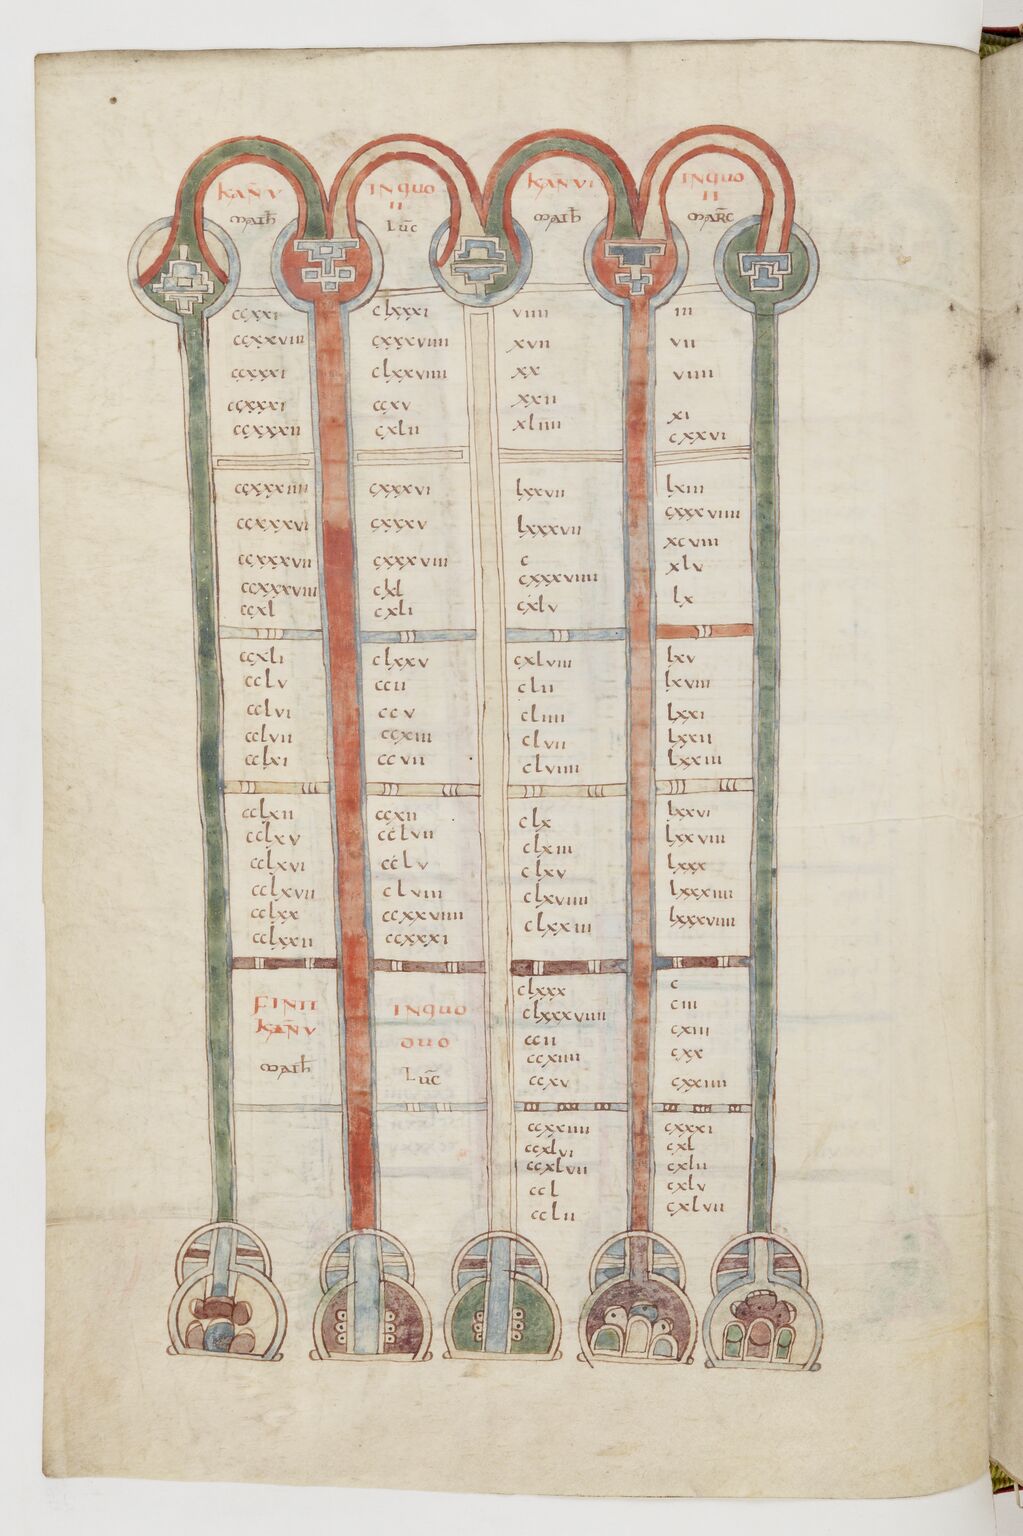 KAÑ V
MATH̄
IN QUO
II
LUC̄
KAÑ VI
MATH̄
IN QUO
II
MARC̄
ccxxi
ccxxviii
ccxxxi
ccxxxi
ccxxxii
ccxxxiiii
ccxxxvi
ccxxxvii
ccxxxviii
ccxl
ccxli
cclv
cclvi
cclvii
cclxi
cclxii
cclxv
cclxvi
cclxvii
cclxx
cclxxii
FINIT
KAÑ V
MATH̄
clxxxi
cxxxviiii
clxxviiii
ccxv
cxlii
cxxxvi
cxxxv
cxxxviii
cxl
cxli
clxxv
ccii
ccv
ccxiii
ccvii
ccxii
cclvii
cclv
clviii
ccxxviiii
ccxxxi
IN QUO
DUO
LUC̄
viiii
xvii
xx
xxii
xliiii
lxxvii
lxxxvii
c
cxxxviiii
cxlv
cxlviii
clii
cliiii
clvii
clviiii
clx
clxiii
clxv
clxviiii
clxxiii
clxxx
clxxxviiii
ccii
ccxiiii
ccxv
ccxxiiii
ccxlvi
ccxlvii
ccl
cclii
iii
vii
viiii
xi
cxxvi
lxiii
cxxxviiii
xcviii
xlv
lx
lxv
lxviii
lxxi
lxxii
lxxiii
lxxvi
lxxviii
lxxx
lxxxiiii
lxxxviiii
c
ciii
cxiii
cxx
cxxiiii
cxxxi
cxl
cxlii
cxlv
cxlvii